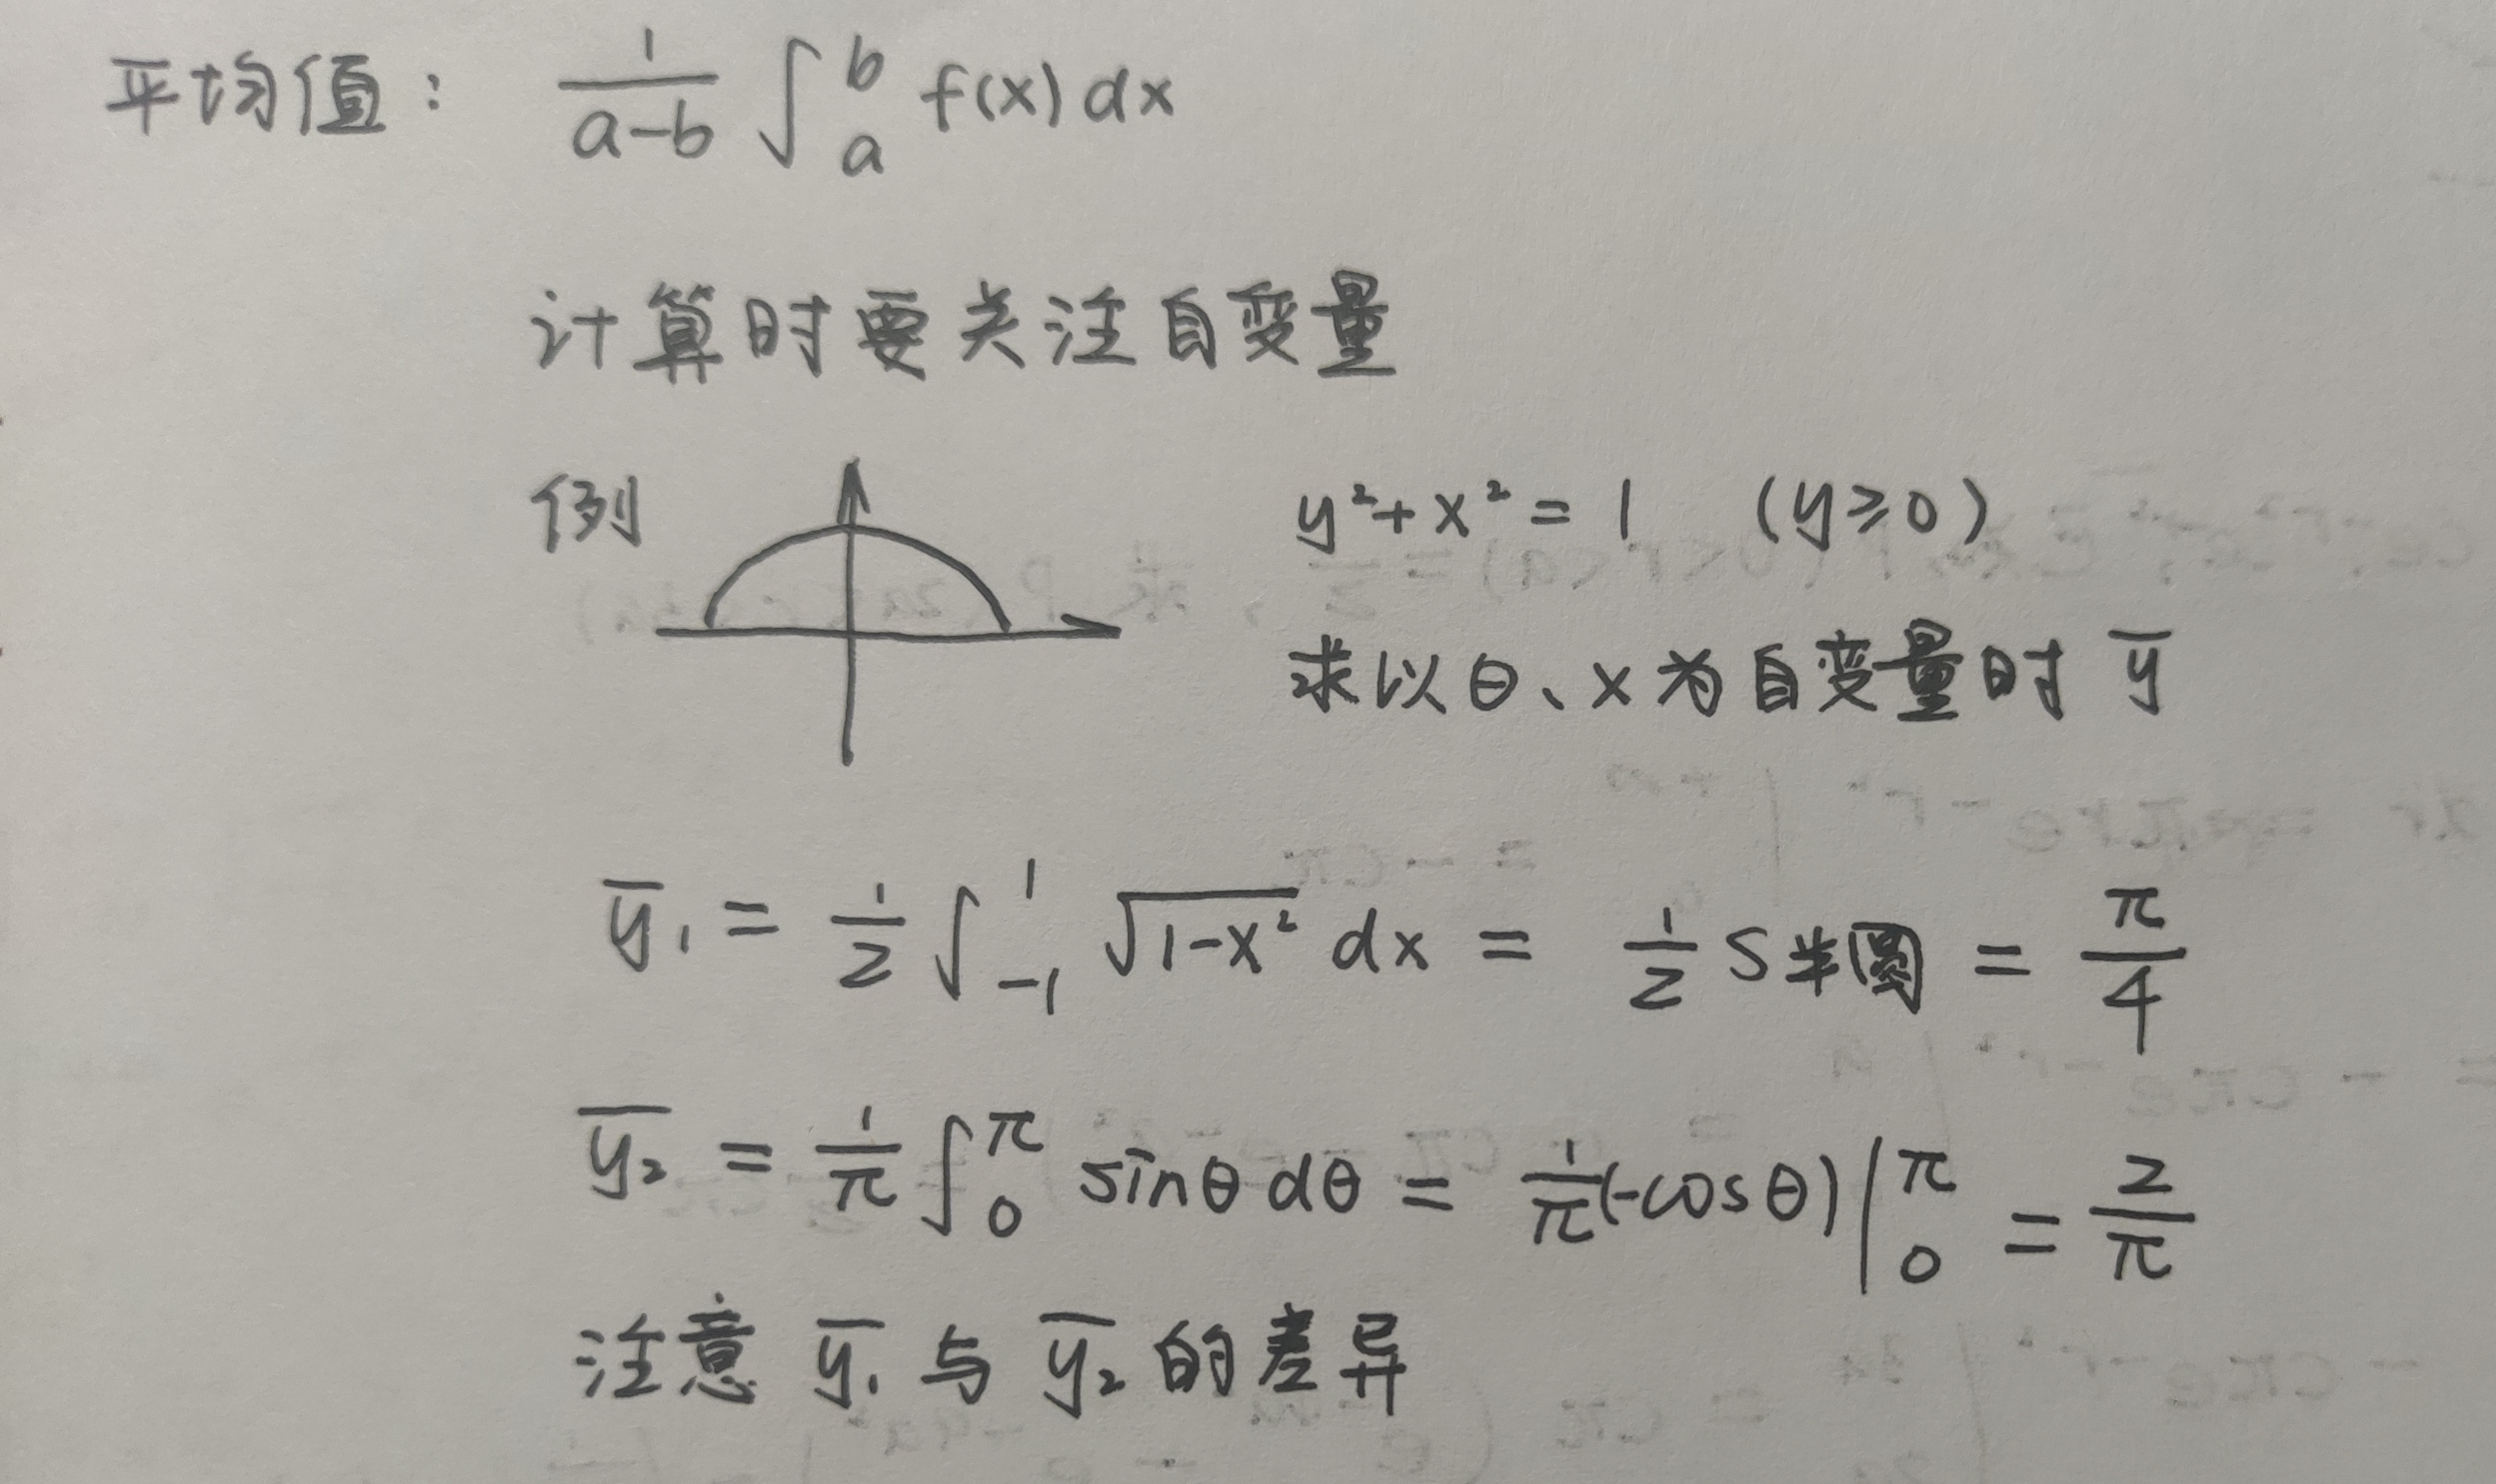 平均值： \frac{1}{a-b} ∫_a^b f(x) dx
计算时要关注自变量
例
y²+x²=1 (y≥0)
求以θ、x为自变量时 \overline{y}
\overline{y}₁ = \frac{1}{2} ∫_{-1}^{1} \sqrt{1-x²} dx = \frac{1}{2} S半圆 = \frac{π}{4}
\overline{y₂} = \frac{1}{π} ∫_0^π sinθ dθ = \frac{1}{π}(-cosθ)|_0^π = \frac{2}{π}
注意 \overline{y₁} 与 \overline{y₂} 的差异